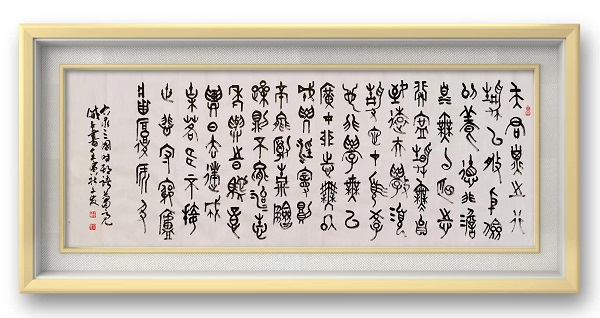 夫君子之行
静以修身儉
以養德非澹
泊無以明志
非寧静無以
致遠夫學須
静也才須學
也非學無以
廣才非志無以
成學淫慢則
不能勵精險
躁則不能治性
年與時馳意
與日去遂成
枯落多不接
世悲守窮廬
將復何及
右录三國時期諸葛亮
誡子書